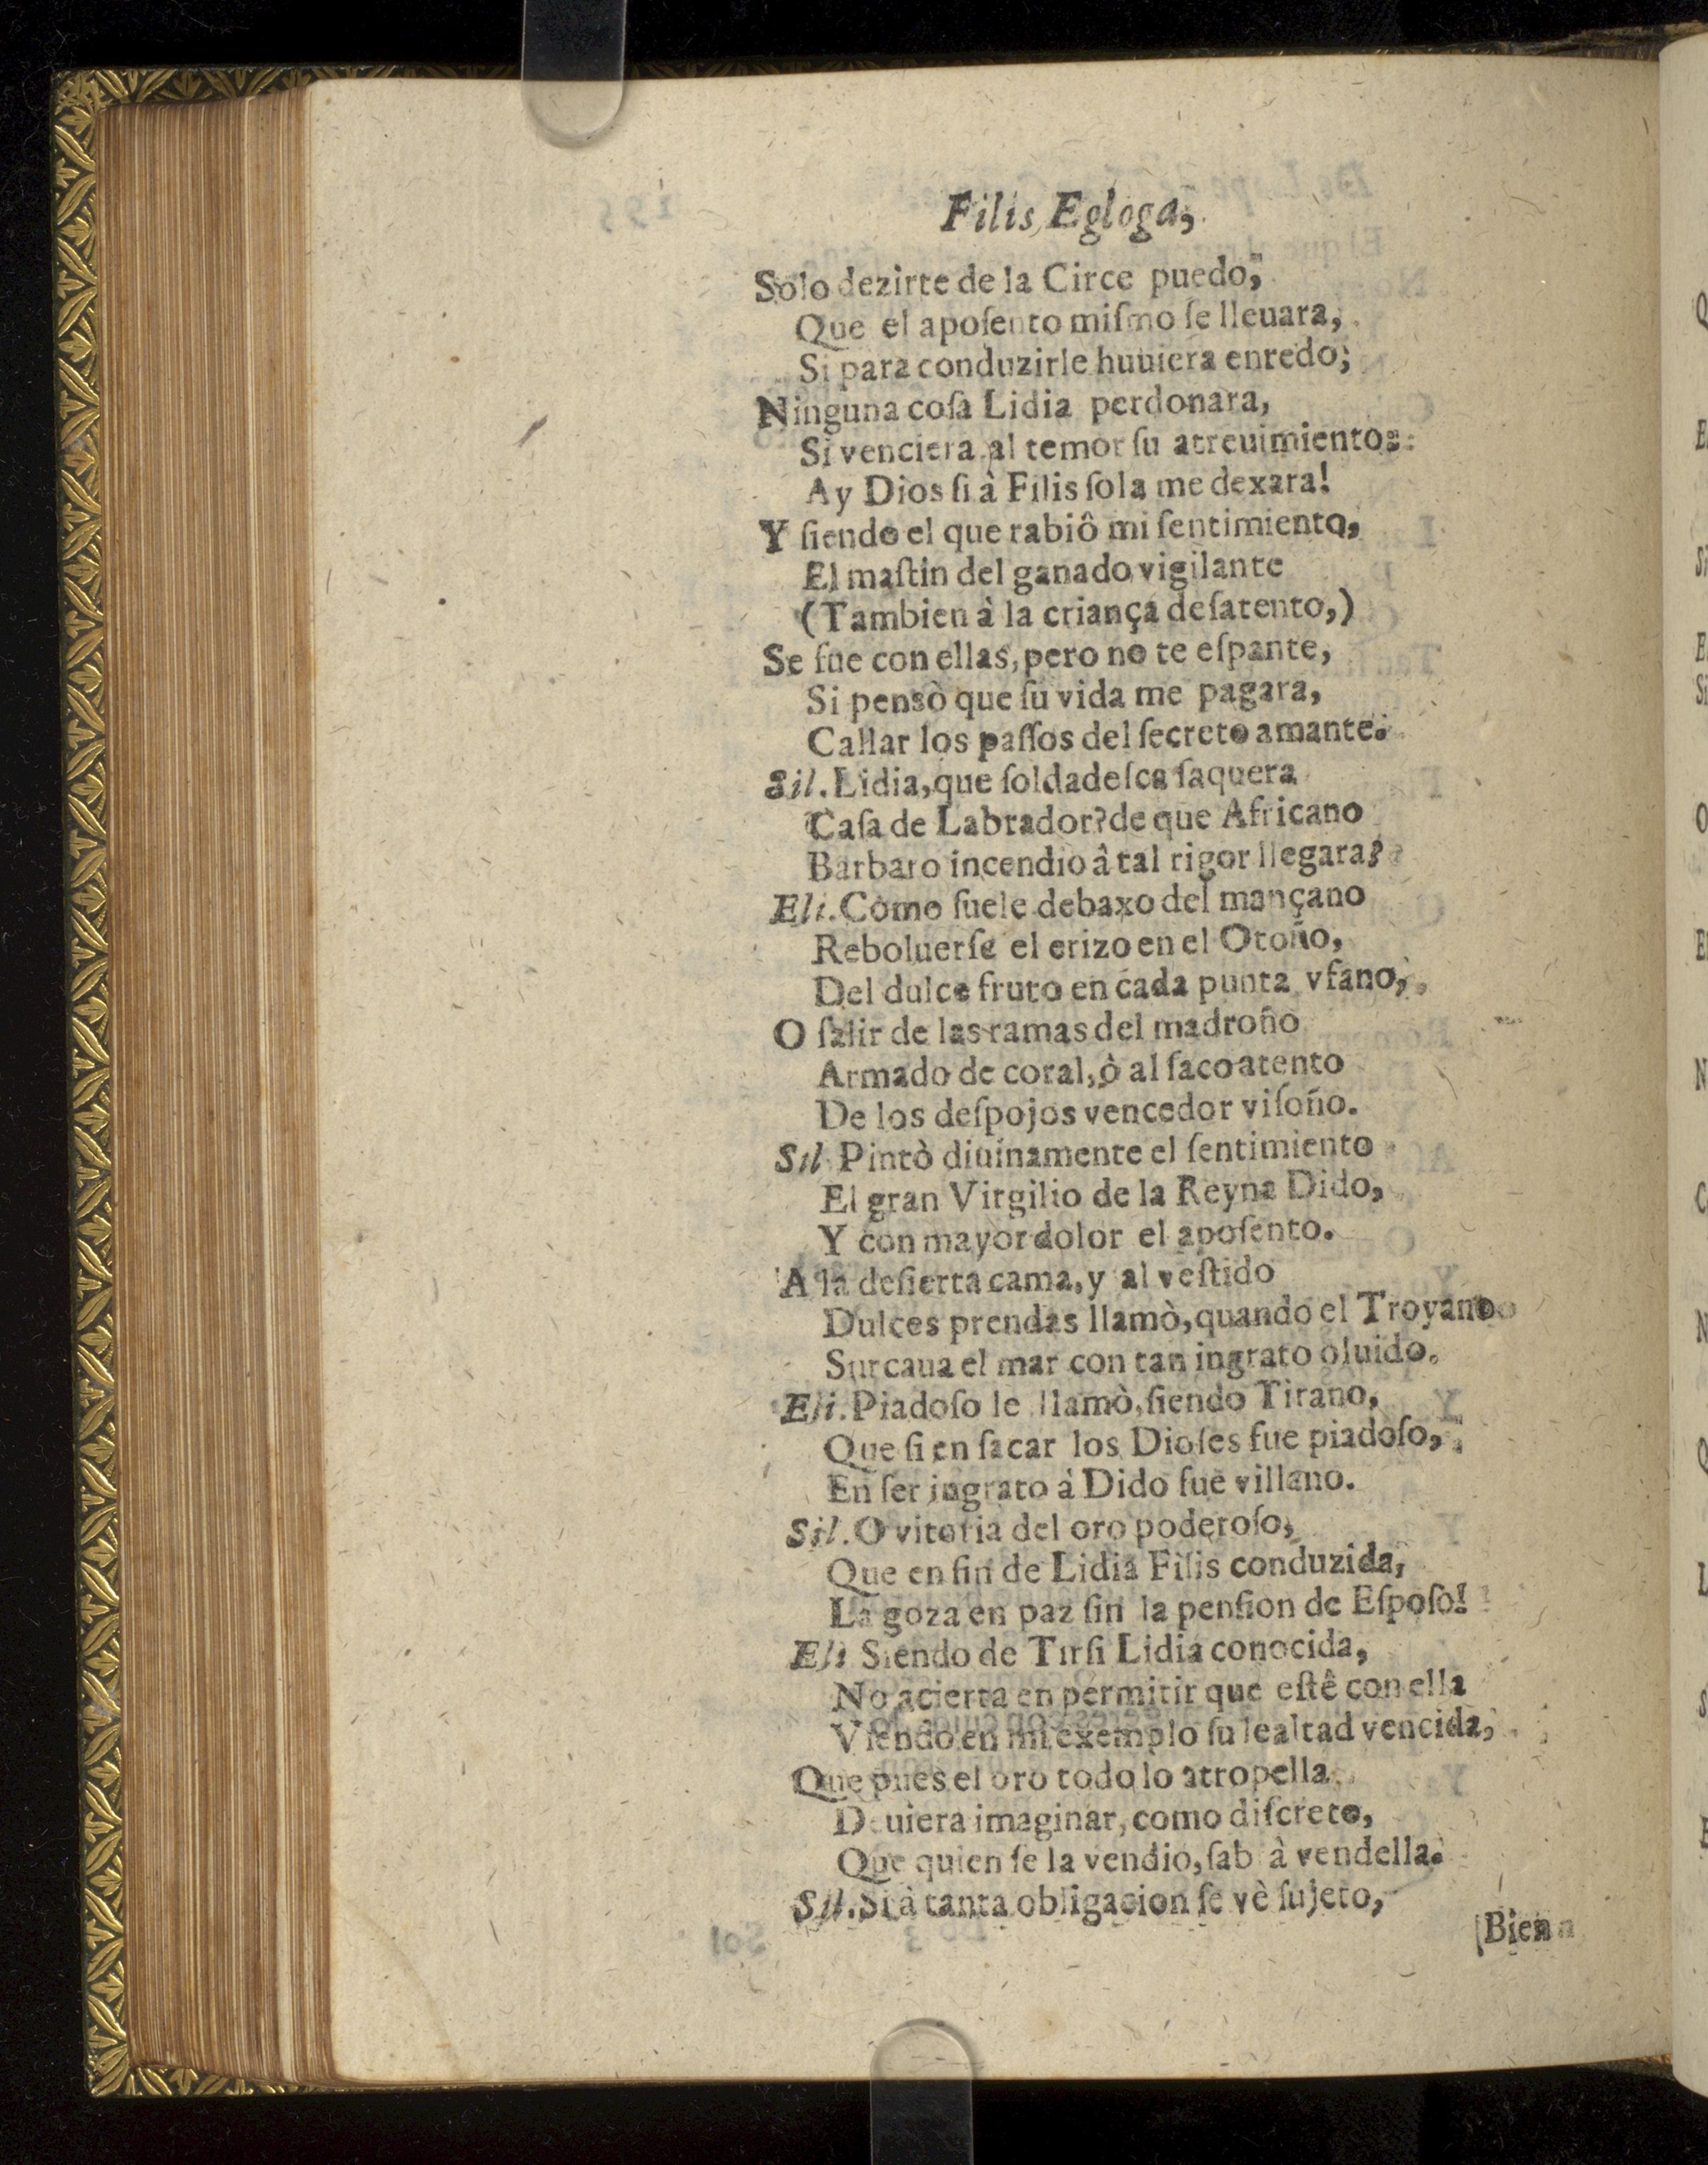 Filis, Egloga,
Solo dezirte de la Circe puedo,
Que el apoſento miſmo ſe lleuara,
Si para conduzirle huuiera enredo;
Ninguna coſa Lidia perdonara,
Si venciera al temor ſu atreuimiento:
Ay Dios ſi à Filis ſola me dexara!
Y ſiendo el que rabiô mi ſentimiento,
El maſtin del ganado vigilante
(Tambien à la criança deſatento,)
Se fue con ellas, pero no te eſpante,
Si pensò que ſu vida me pagara,
Callar los paſſos del ſecreto amante.
Sil. Lidia, que ſoldadeſca ſaquera
Caſa de Labrador? de que Africano
Barbaro incendio â tal rigor llegara?
Eli. Como ſuele debaxo del mançano
Reboluerſe el erizo en el Otoño,
Del dulce fruto en cada punta vfano,
O ſalir de las ramas del madroño
Armado de coral, ò al ſaco atento
De los deſpojos vencedor viſoño.
Sil. Pintò diuinamente el ſentimiento
El gran Virgilio de la Reyna Dido,
Y con mayor dolor el apoſento.
A la deſierta cama, y al veſtido
Dulces prendas llamò, quando el Troyano
Surcaua el mar con tan ingrato oluido.
Eli. Piadoſo le llamò, ſiendo Tirano,
Que ſi en ſacar los Dioſes fue piadoſo,
En ſer ingrato à Dido fue villano.
Sil. O vitoria del oro poderoſo,
Que en fin de Lidia Filis conduzida,
La goza en paz ſin la penſion de Eſpoſo!
Eli Siendo de Tirſi Lidia conocida,
No acierta en permitir que eſtê con ella
Viendo en mi exemplo ſu lealtad vencida,
Que pues el oro todo lo atropella
Deuiera imaginar, como diſcreto,
Que quien ſe la vendio, ſab à vendella.
Sil. Si à tanta obligacion ſe vè ſujeto,
Bien